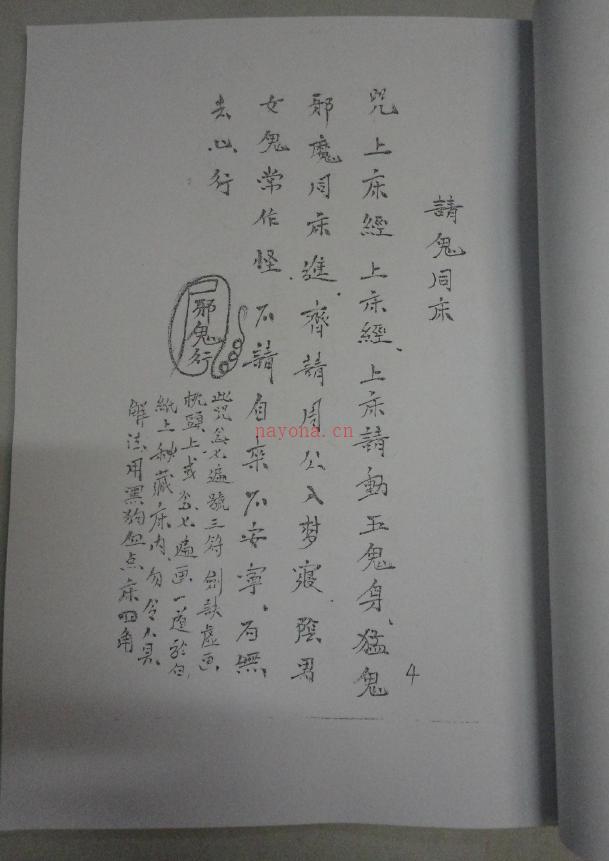 請鬼同床
咒上床經上床經、上床請動五鬼身、猛鬼
邪魔同床進、齊請周公入梦寢、陰君
女鬼常作怪、不請自來不安寧、石無
去心行
邪鬼行
此咒念七遍號三符劍訣虛画
枕頭上或念七遍画一道於白
紙上秘藏床內、勿令人見
解法用黑狗血点床四角
4
nayona.cn